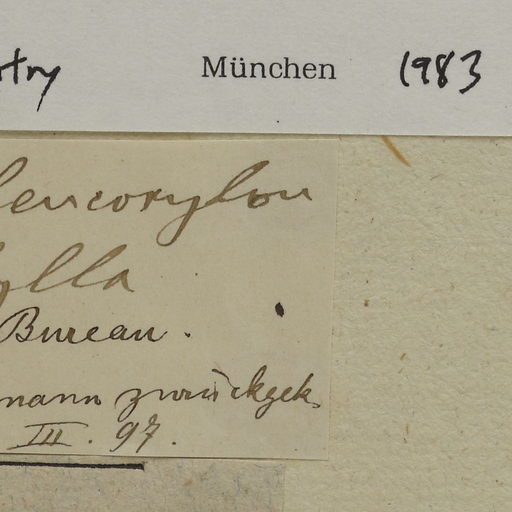 try München 1983
leucoxylon
ylla
Bureau.
mann zurückgek.
III. 97.